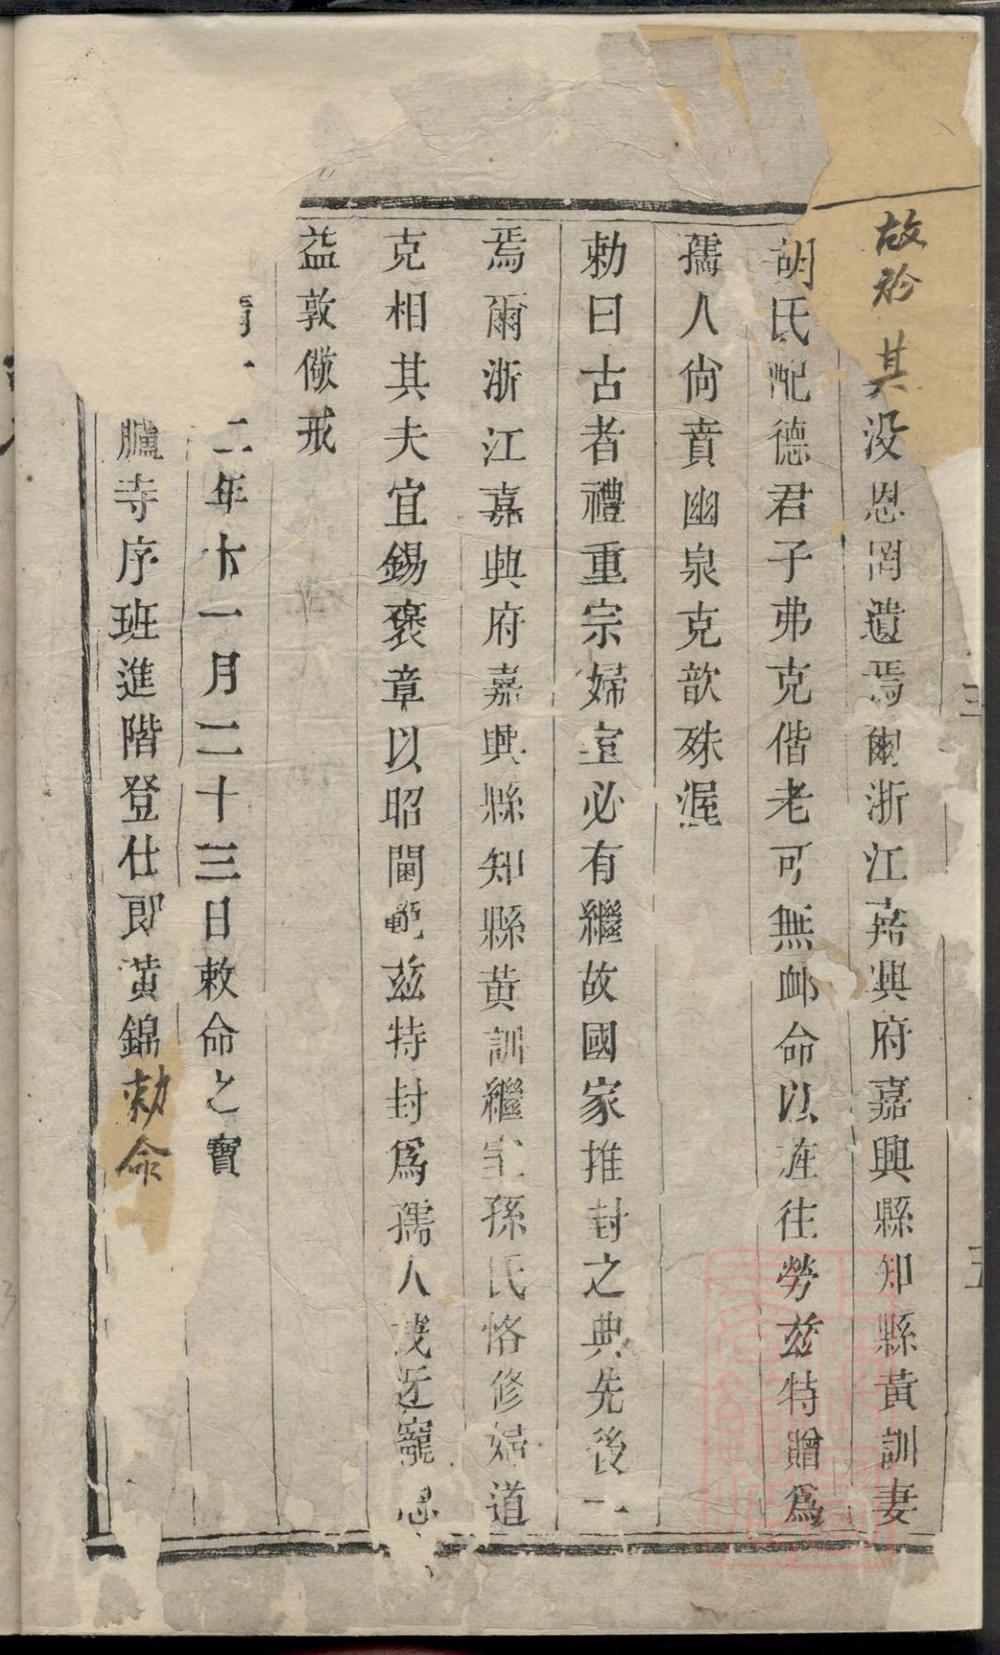 故於其没恩罔遺焉爾浙江嘉興府嘉興縣知縣黃訓妻
胡氏配德君子弗克偕老可無卹命以旌往勞茲特贈爲
孺人尙賁幽泉克歆殊渥
勅曰古者禮重宗婦室必有繼故國家推封之典先後一
焉爾浙江嘉興府嘉興縣知縣黃訓繼室孫氏恪修婦道
克相其夫宜錫褒章以昭閫範茲特封爲孺人茂迓寵恩
益敦儆戒
二年十一月二十三日敕命之寶
臚寺序班進階登仕郎黃錦勅命